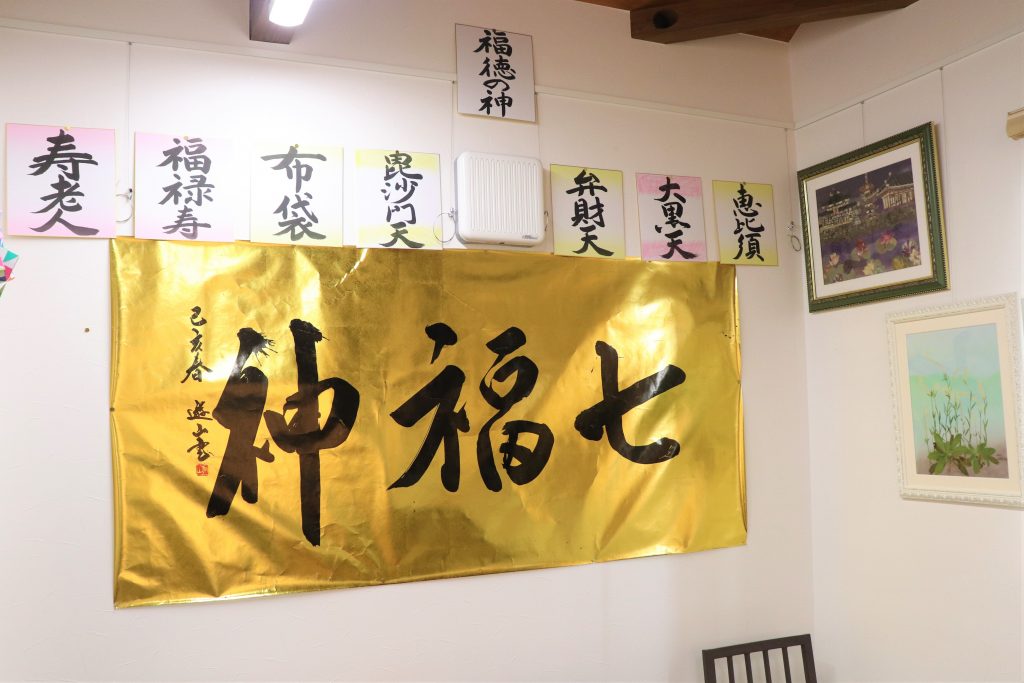 福徳の神
恵比須
大黒天
弁財天
毘沙門天
布袋
福禄寿
寿老人
七福神
己亥春